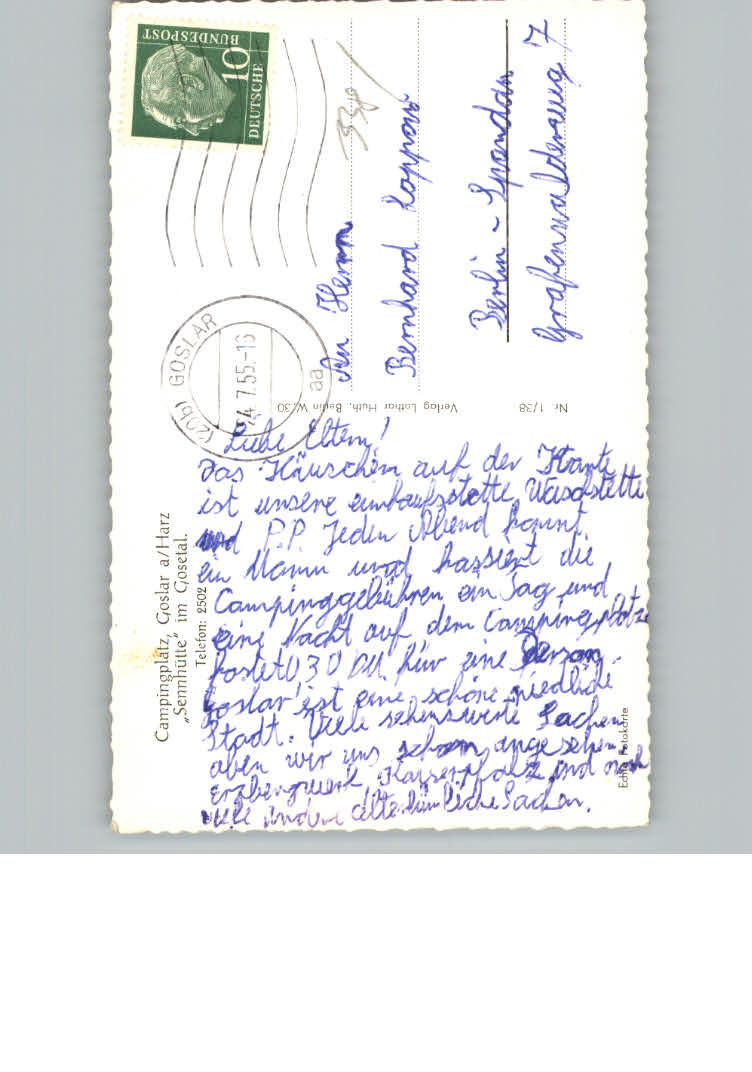 Campingplatz, Goslar a/Harz
„Sennhütte" im Gosetal.
Telefon: 2502
Liebe Eltern!
Das Häuschen auf der Karte
ist unsere einkaufsstette, Waschstette
und P.P. Jeden Abend kommt
ein Mann und kassiert die
Campinggebühren ein Tag und
eine Nacht auf dem Campingplatze
kostet 0 30 DM für eine Person.
Goslar ist eine schöne niedliche
Stadt. Viele sehenswerte Sachen
aben wir uns schon angesehen
Erzbergwerk Kaiserpfalz und noch
viele andere altertümliche Sachen.
Echte Fotokarte
Verlag Lothar Huth, Berlin W 30
Nr. 1/38
DEUTSCHE
BUNDESPOST
10
(20b) GOSLAR
24.7.55.-16
aa
An Herrn
Bernhard Koppow
Berlin - Spandau
Grafenwalderweg 7